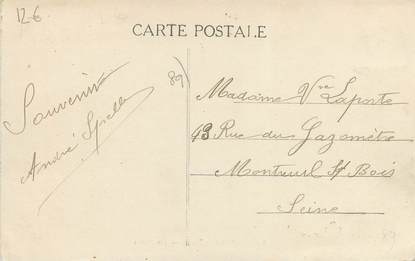 12€
CARTE POSTALE
89)
Souvenir
André
Madame Vve Laporte
93 Rue du Gazomètre
Montreuil St Bois
Seine